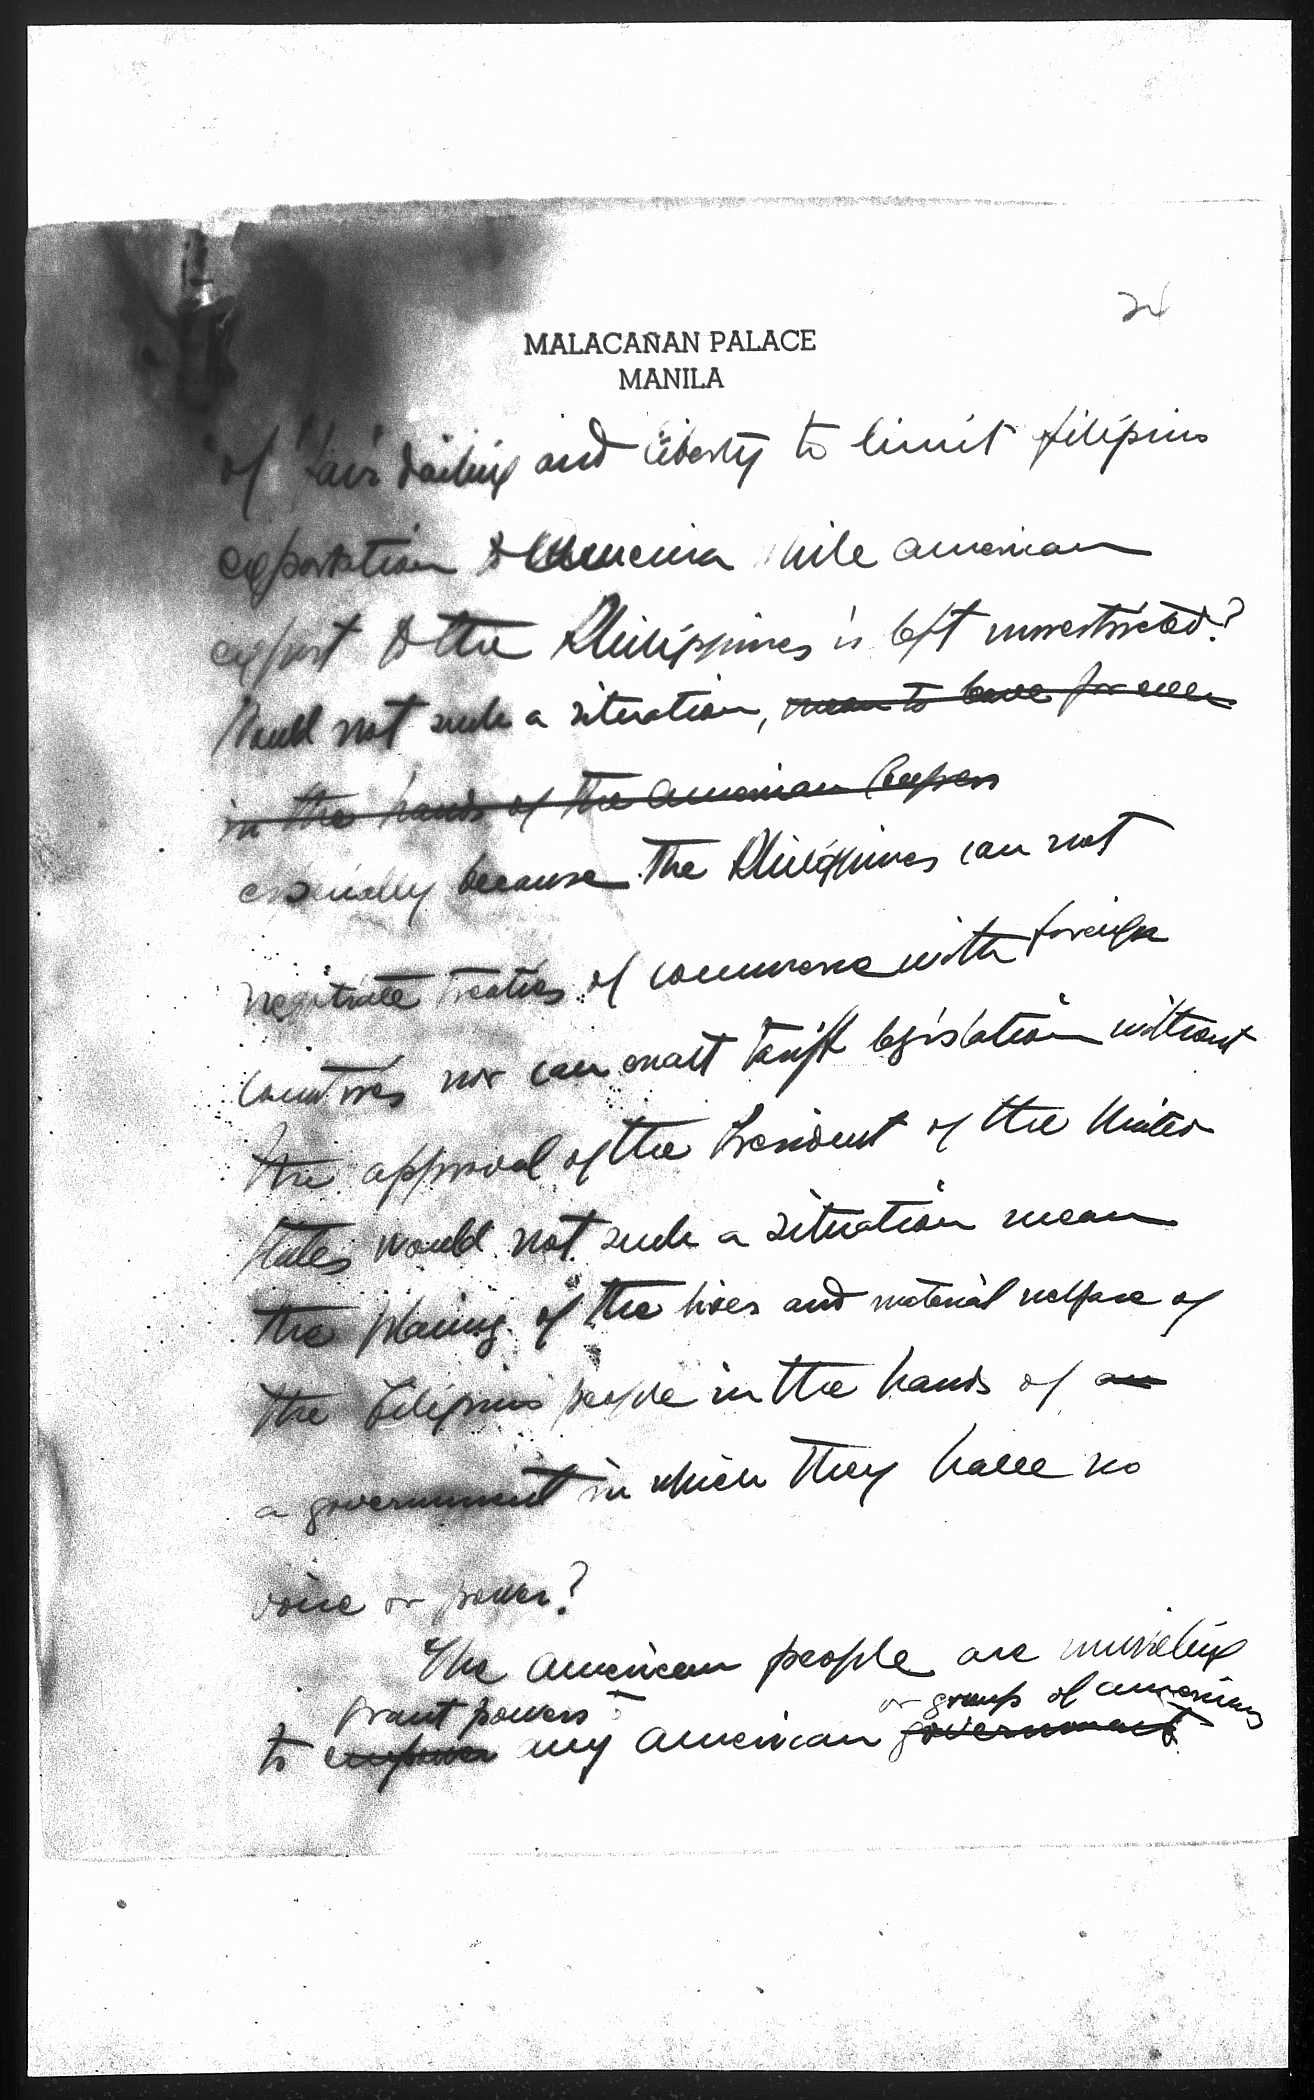 24
MALACAÑAN PALACE
MANILA
of fair dailing and liberty to limit filipino
exportation to America while american
export to the Philippines is left unrestricted?
Would not such a situation, mean to leave for ever
in the hands of the American
especially because the Philippines can not
negotiate treaties of commerce with foreign
countries nor can enact tariff legislation without
the approval of the President of the United
States would not such a situation mean
the placing of the lives and material welfare of
the Filipino people in the hands of an
a government in which they have no
voice or power?
The American people are unwilling
grant powers or group of americans
to empower any American government